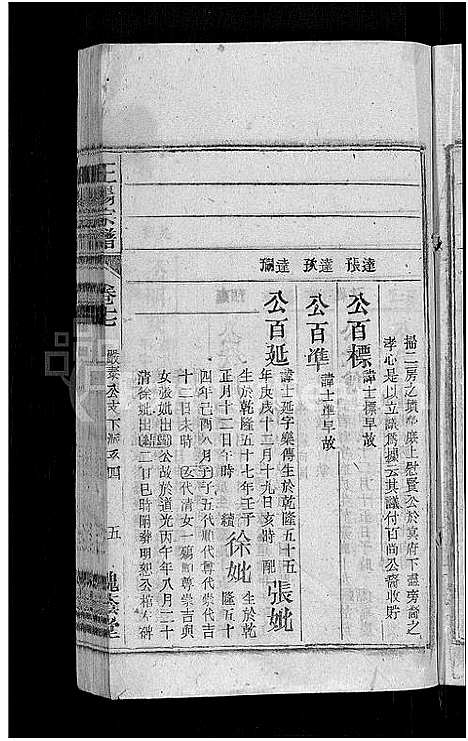 掃二房之墳塋廉上慰賢公於冥府下盡旁裔之
孝心是以立議爲據云其議付百尚公裔收貯
達張
公百標
諱士標早故
達孫
公百準
諱士準早故
達瑞
公百延
諱士延字藥傳生於乾隆五十五
年庚戌十二月十九日亥時 配
張妣
生於乾隆五十七年壬子
正月十二日午時 續
徐妣
生於乾隆五十
四年己酉八月子子五代順代尊代崇代吉
十二日未時 女代清女一 瑞尊崇吉與
女張妣出 公故於道光丙午年八月二十
清徐妣出 二日巳時附葬明恕公棺左碑
王楊宗譜
卷七
公支下
五
槐蔭堂